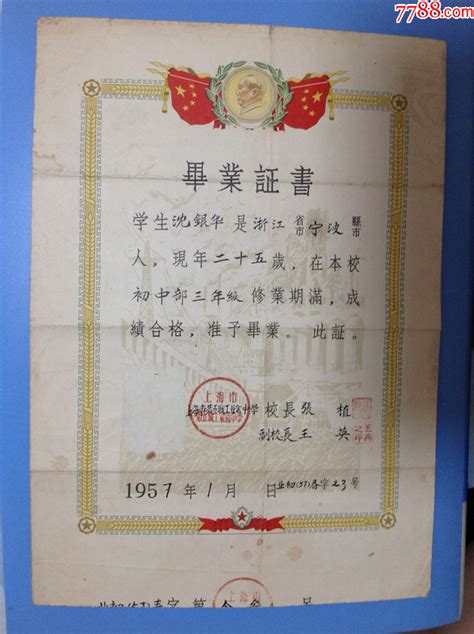 7788.com
畢業証書
学生沈銀华是浙江省市宁波縣市
人，現年二十五歲，在本校
初中部三年級修業期滿，成
績合格，准予畢業。此証。
上海市
校長張植
副校長王英
1957年1月 日
业初(57)春字23号
上海市
业初(57)春字第